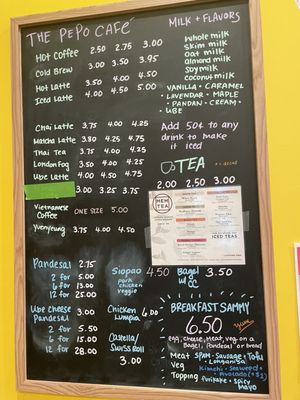 THE PEPO CAFÉ
Hot Coffee 2.50 2.75 3.00
Cold Brew 3.00 3.50 3.95
Hot Latte 3.50 4.00 4.50
Iced Latte 4.00 4.50 5.00
Chai Latte 3.75 4.00 4.25
Matcha Latte 3.50 4.25 4.75
Thai Tea 3.75 4.00 4.25
London Fog 3.50 4.00 4.25
Ube Latte 3.75 4.00 4.50
3.00 3.25 3.75
Vietnamese Coffee ONE SIZE 5.00
Yuenyeung 3.75 4.00 4.50
MILK + FLAVORS
Whole milk
Skim milk
Oat milk
almond milk
Soy milk
coconut milk
VANILLA · CARAMEL
· LAVENDAR · MAPLE
· PANDAN · CREAM ·
· UBE
Add 50¢ to any
drink to make
it iced
TEA
2.00 2.50 3.00
MEM TEA
ICED TEAS
Pandesal 2.75
2 for 5.00
6 for 13.00
12 for 25.00
Ube Cheese Pandesal 3.00
2 for 5.50
6 for 15.00
12 for 28.00
Siopao 4.50
pork
chicken
veggie
Chicken Lumpia 6.00
Castella/
Swiss Roll
3.00
Bagel w/ CC 3.50
BREAKFAST SAMMY
6.50 Yum
egg, cheese, meat, veg on a
Bagel, Pandesal or bread
Meat SPAM · Sausage · Tofu
· Longanisa
Veg Kimchi · Seaweed ·
Avocado
Topping furikake · spicy
mayo